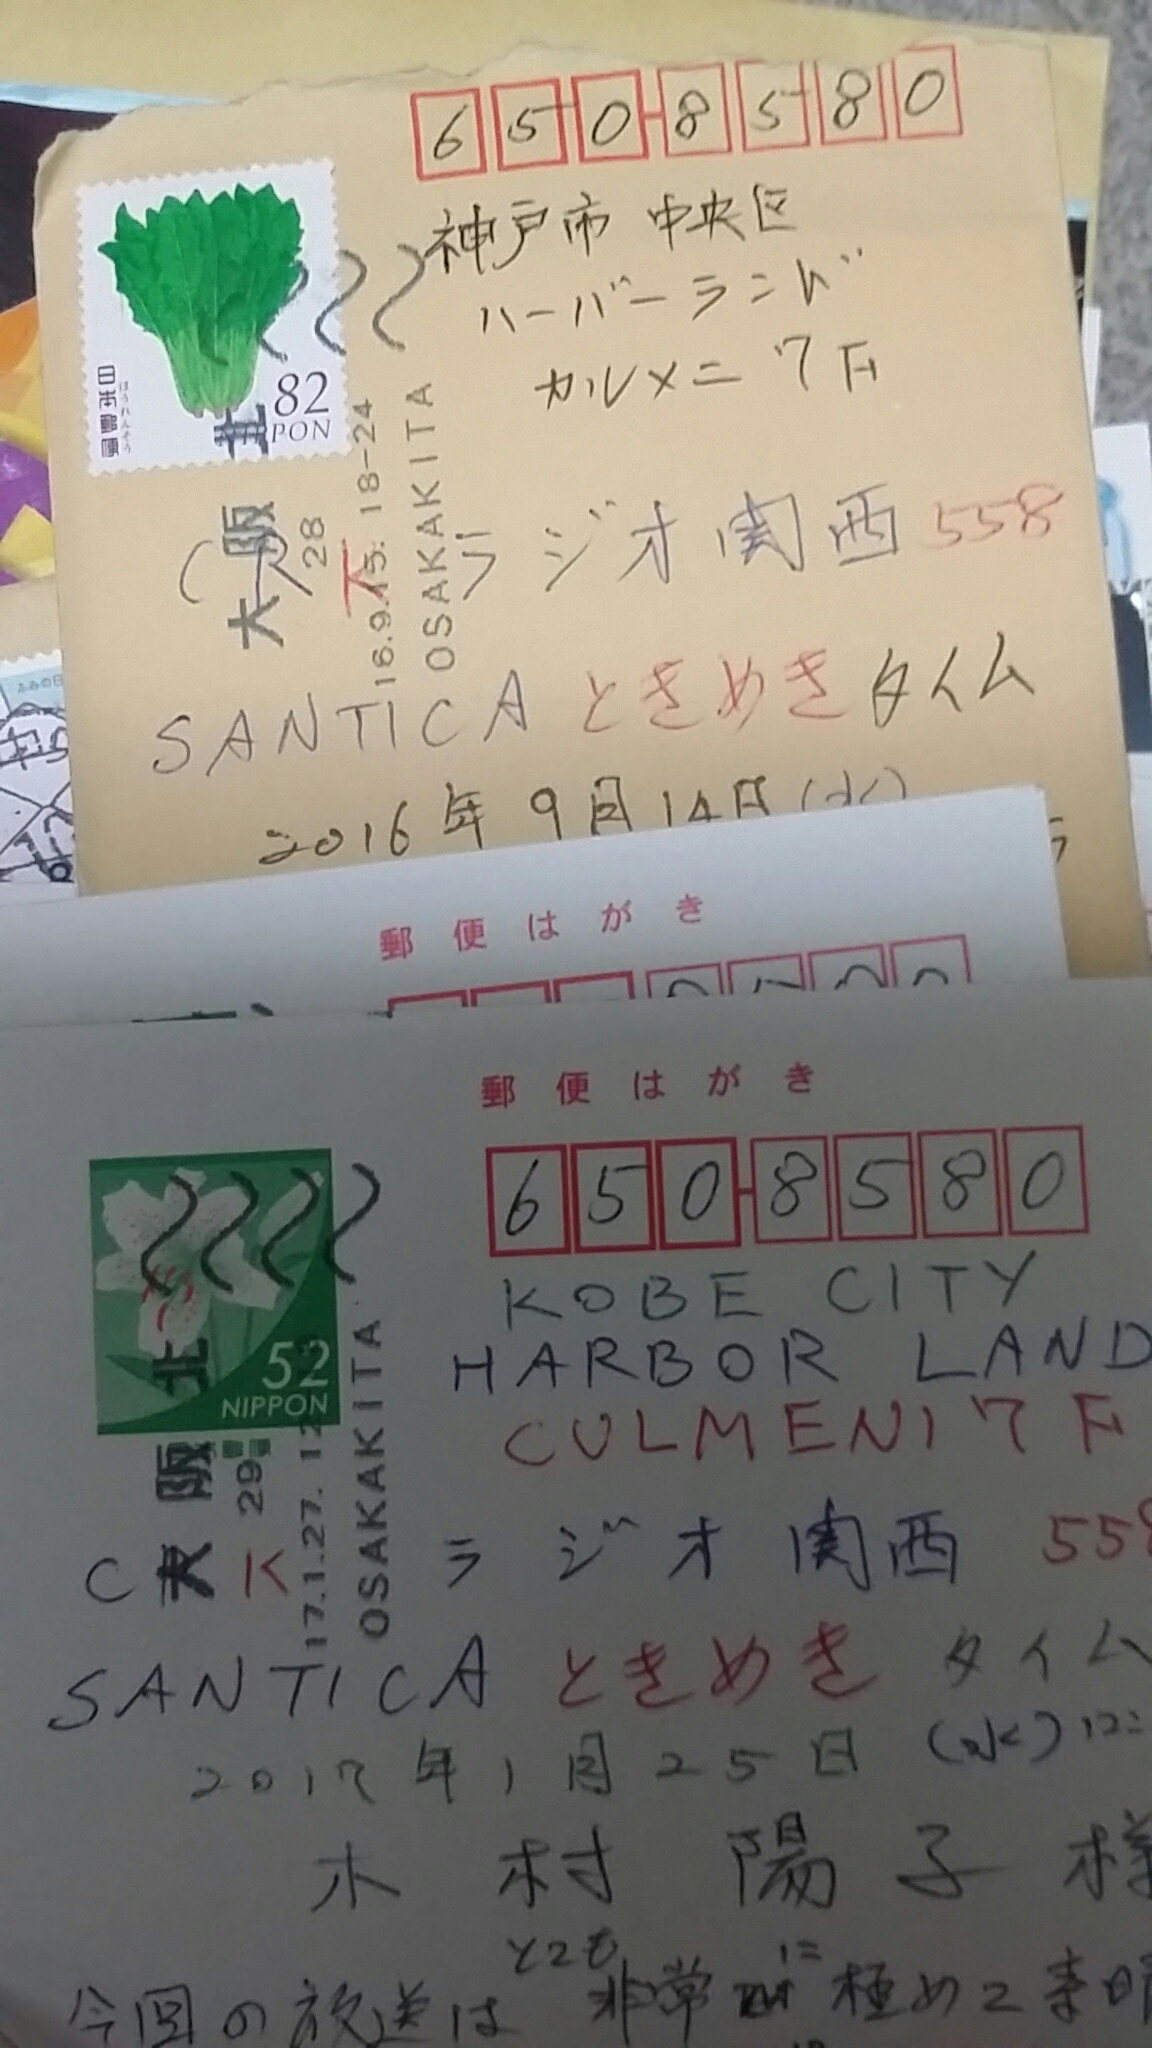 650-8580
神戸市 中央区
ハーバーランド
カルメニ 7F
日本郵便
ほうれんそう
82
大阪北
28
16.9.15. 18-24
OSAKAKITA
CRK ラジオ関西 558
SANTICA ときめきタイム
2016年9月14日(水)
ふみの日
郵便はがき
郵便はがき
650-8580
KOBE CITY
HARBOR LAND
CULMENI 7F
52
NIPPON
大阪北
29
17.1.27. 12
OSAKAKITA
C K ラジオ関西 558
SANTICA ときめき タイム
2017年1月25日 (水)
木村陽子様
とても
今回の放送は 非常に極めて